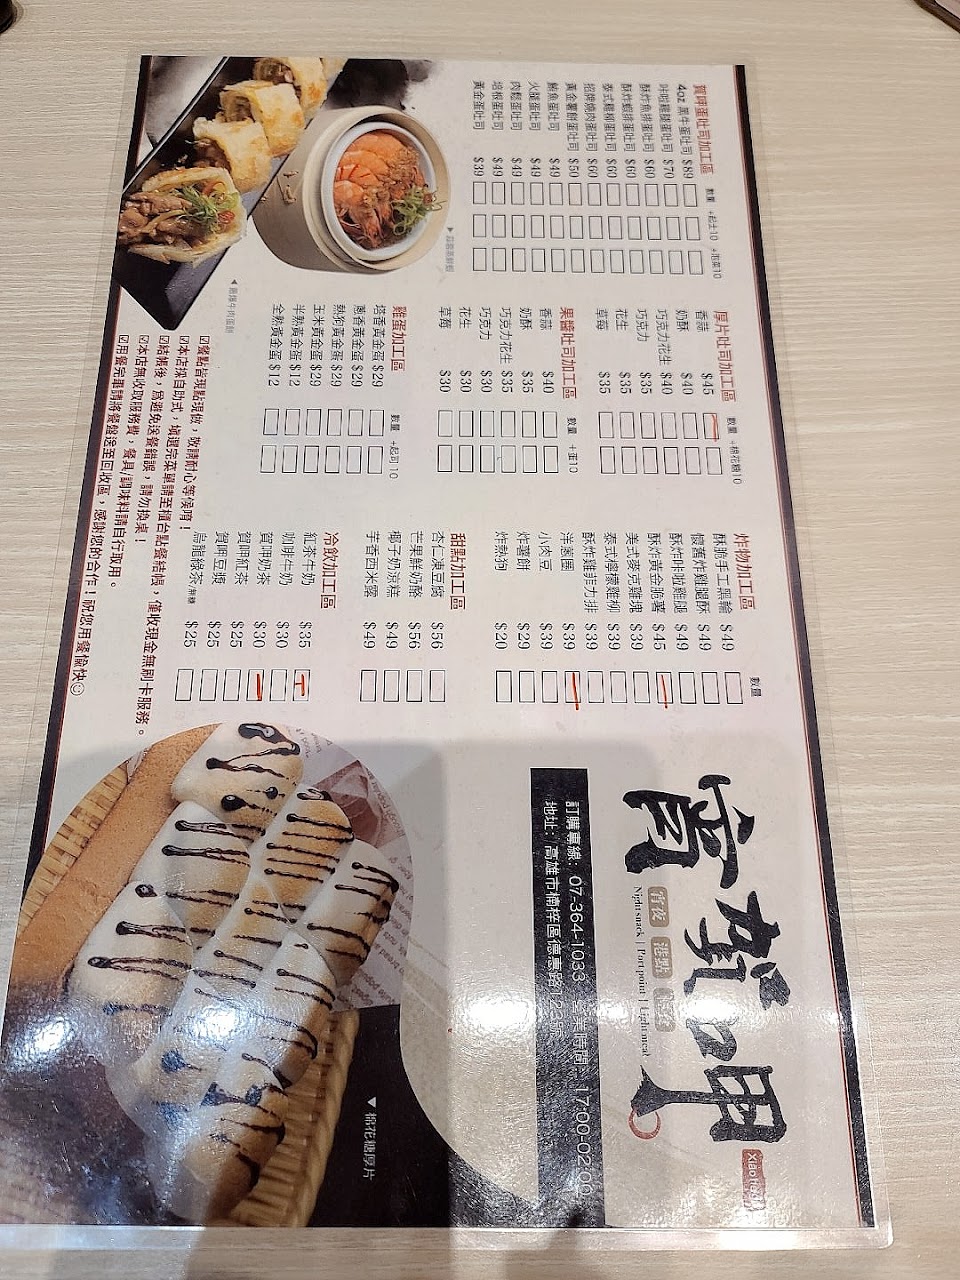 賀呷蛋吐司加工區 數量 +起士10 +泡菜10
4oz 黑牛蛋吐司 $89
咔啦雞腿蛋吐司 $70
酥炸魚排蛋吐司 $60
酥炸蝦排蛋吐司 $60
泰式雞柳蛋吐司 $60
招牌燒肉蛋吐司 $60
黃金薯餅蛋吐司 $50
鮪魚蛋吐司 $49
火腿蛋吐司 $49
肉鬆蛋吐司 $49
培根蛋吐司 $49
黃金蛋吐司 $39
厚片吐司加工區 數量 +棉花糖10
香蒜 $45
奶酥 $40
巧克力花生 $40
巧克力 $35
花生 $35
草莓 $35
果醬吐司加工區 數量 +蛋10
香蒜 $40
奶酥 $35
巧克力花生 $35
巧克力 $30
花生 $30
草莓 $30
雞蛋加工區 數量 +起司10
塔香黃金蛋 $29
蔥香黃金蛋 $29
熱狗黃金蛋 $29
玉米黃金蛋 $29
半熟黃金蛋 $12
全熟黃金蛋 $12
炸物加工區 數量
酥脆手工黑輪 $49
懷舊炸雞腿酥 $49
酥炸咔啦雞腿 $49
酥炸黃金脆薯 $45
美式麥克雞塊 $39
泰式檸檬雞柳 $39
酥炸雞菲力排 $39
洋蔥圈 $39
小肉豆 $39
炸薯餅 $29
炸熱狗 $20
甜點加工區
杏仁凍豆腐 $56
芒果鮮奶酪 $56
椰子奶涼糕 $49
芋香西米露 $49
冷飲加工區
紅茶牛奶 $35
咖啡牛奶 $30
賀呷奶茶 $30
賀呷紅茶 $25
賀呷豆漿 $25
烏龍綠茶/無糖 $25
☑餐點皆現點現做，敬請耐心等候唷！
☑本店採自助式，填選完菜單請至櫃台點餐結帳，僅收現金無刷卡服務。
☑結帳後，為避免送餐錯誤，請勿換桌！
☑本店無收取服務費，餐具/調味料請自行取用。
☑用餐完畢請將餐盤送至回收區，感謝您的合作！祝您用餐愉快☺
宵賀呷
宵夜 港點
Night snack | Port point | Light meat
訂購專線：07-364-1033 營業時間：17:00-02:00
地址：高雄市楠梓區德惠路
▼棉花糖厚片